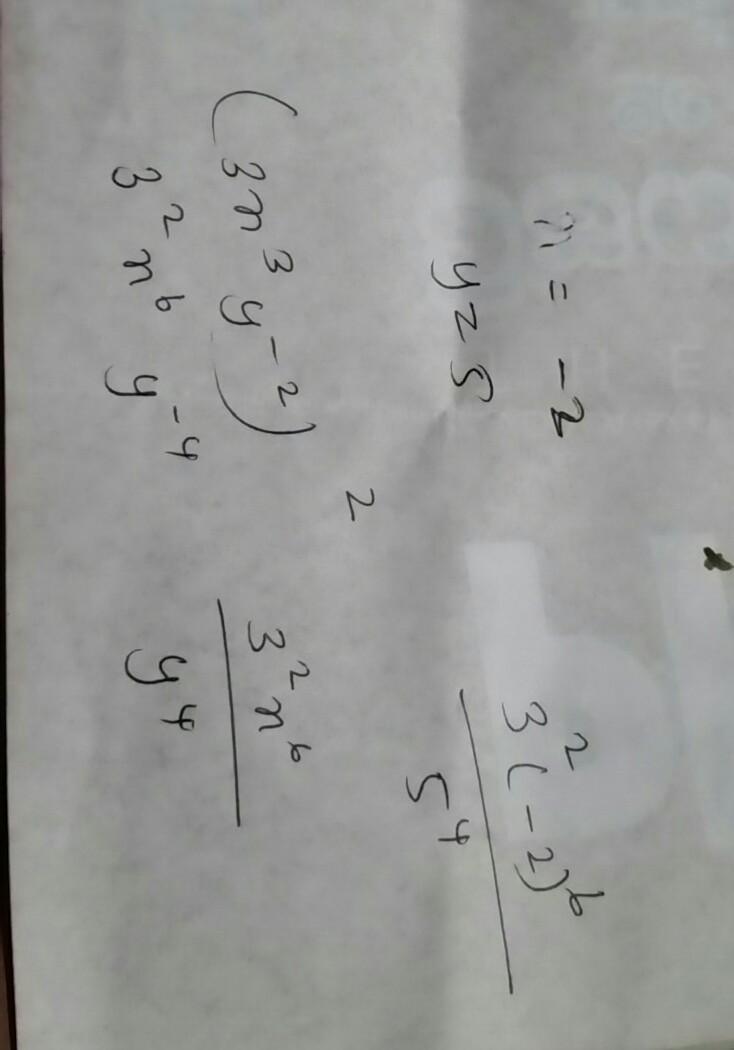 n = -2
y = 5
(3n³y⁻²)²
3²n⁶y⁻⁴
3²n⁶
y⁴
3²(-2)⁶
5⁴